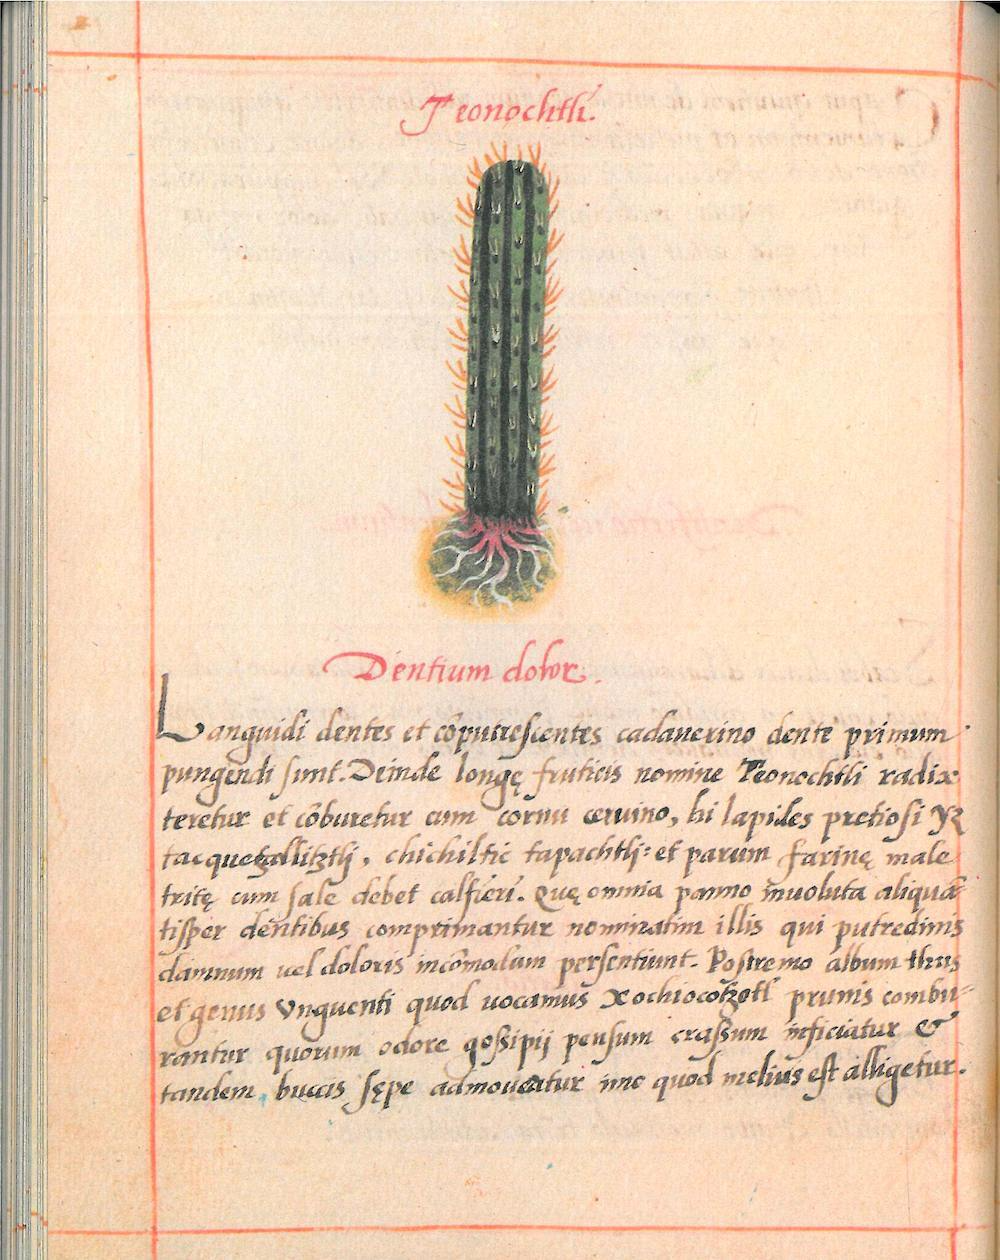 Teonochtli.
Dentium dolor.
Languidi dentes et cōputrescentes cadauerino dente primum
pungendi sunt. Deinde longę fruticis nomine Teonochtli radix
teretur et cōburetur cum cornu ceruino, hi lapides pretiosi Yz
tacquetzallitztlj, chichiltic tapachtlj: et parum farinę male
tritę cum sale debet calfieri. Quę omnia panno inuoluta aliquā-
tisper dentibus comprimantur nominatim illis qui putredinis
damnum uel doloris incōmodum persentiunt. Postremo album thus
et genus Vnguenti quod uocamus xochiocotzotl prunis combu-
rantur quorum odore gossipij pensum crassum inficiatur &
tandem buccis sępe admoueatur imo quod melius est alligetur.